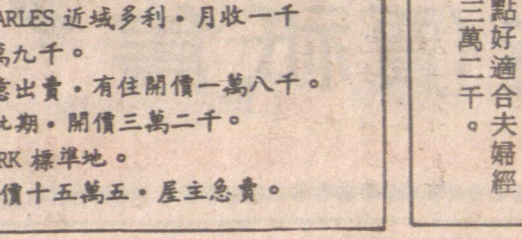 ARLES 近域多利。月收一千
萬九千。
意出賣。有住開價一萬八千。
此期。開價三萬二千。
RK 標準地。
價十五萬五。屋主急賣。
點好適合夫婦經
三萬二千。